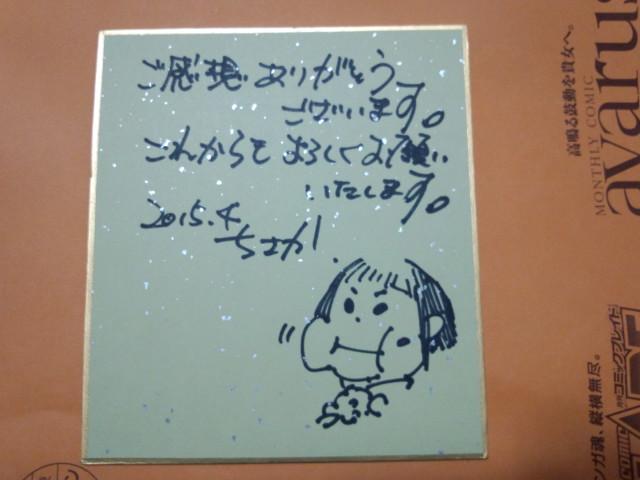 ご感想ありがとう
ございます。
これからもよろしくお願い
いたします。
2015.4
ちさか
高鳴る鼓動を貴女へ。
MONTHLY COMIC
avarus
ンガ魂、縦横無尽。
月刊コミックブレイド
COMIC